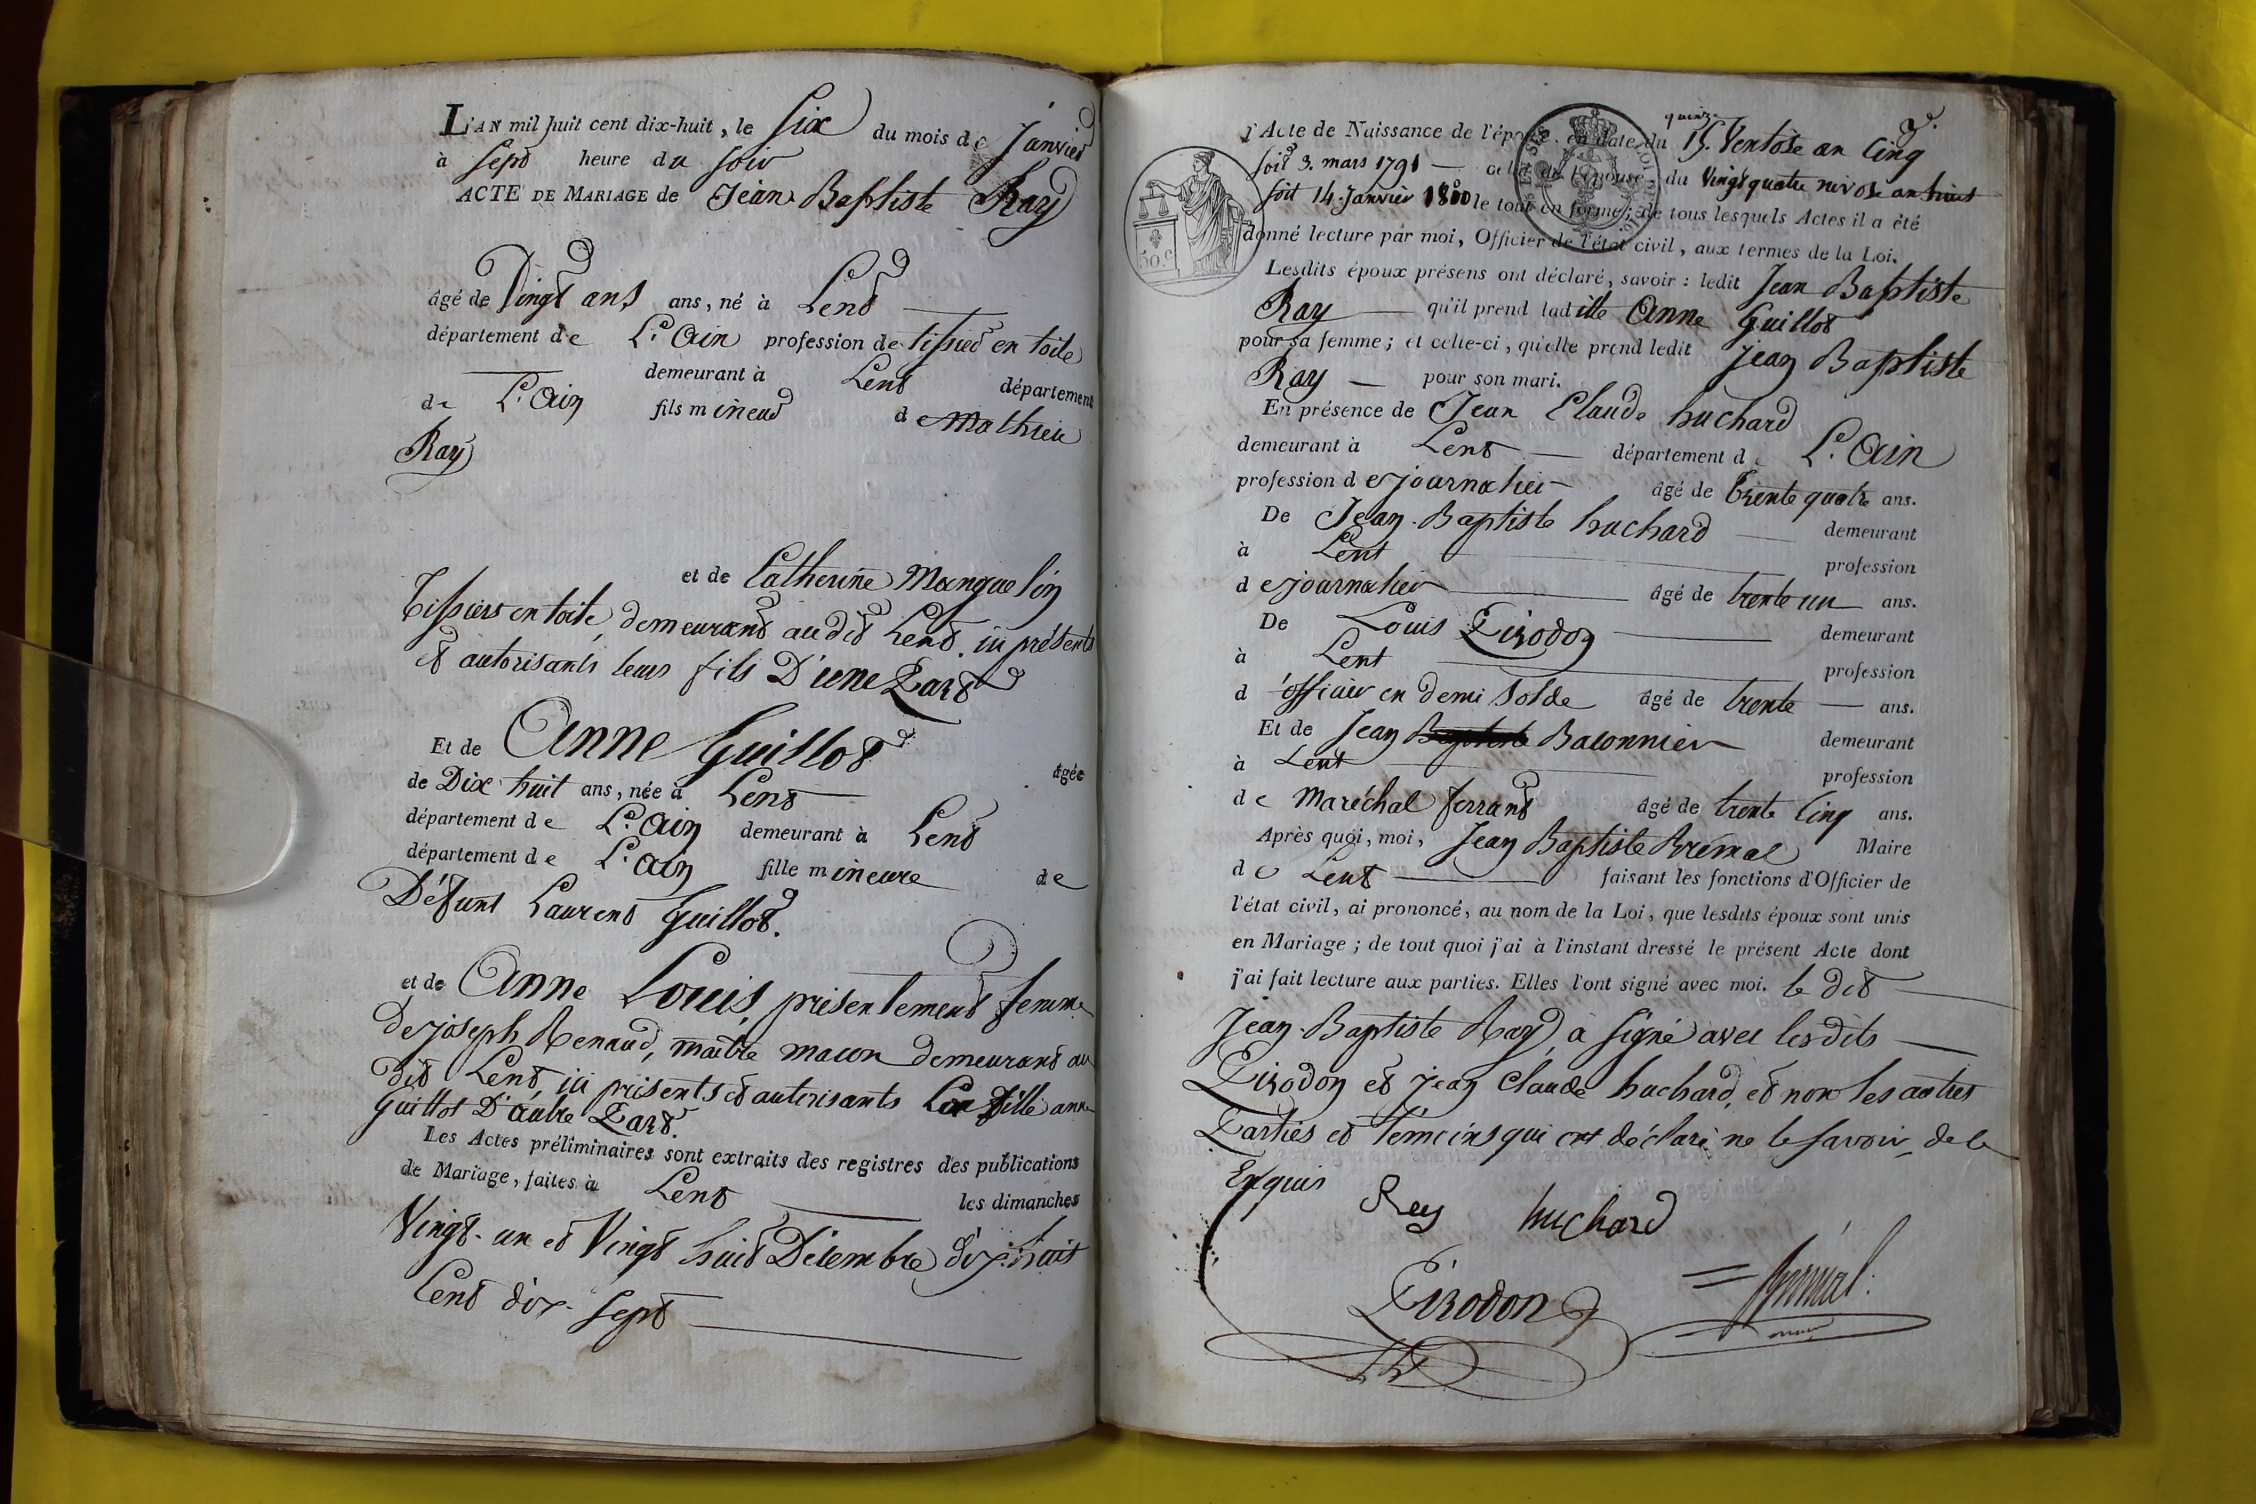 L'AN mil huit cent dix-huit, le six du mois de Janvier
à sept heure du soir
ACTE DE MARIAGE de Jean Baptiste Ray
âgé de Vingt ans ans, né à Lent
département de L'Ain profession de tissier en toile
demeurant à Lent département
de L'Ain fils mineur de Mathieu
Ray
et de Catherine Manguelin
Tissiers en toile, demeurant au dit Lent, ici présents
et autorisants leur fils D'une Part
Et de Anne Guillot âgée
de Dix huit ans, née à Lent
département de L'Ain demeurant à Lent
département de L'ain fille mineure de
Défunt Laurent Guillot.
et de Anne Louis, présentement femme
De joseph Renaud, maître macon demeurant au
dit Lent ici présents et autorisants La fille anne
Guillot D'autre Part.
Les Actes préliminaires sont extraits des registres des publications
de Mariage, faites à Lent les dimanches
Vingt-un et Vingt huit Décembre dix-huit
Cent dix-sept
l'Acte de Naissance de l'époux, en date du quinze 15. Ventose an Cinq
soit 3. mars 1791 celui de l'épouse, du Vingt quatre nivose an huit
soit 14. Janvier 1800 le tout en forme; de tous lesquels Actes il a été
donné lecture par moi, Officier de l'état civil, aux termes de la Loi.
50 c
Lesdits époux présens ont déclaré, savoir: ledit Jean Baptiste
Ray qu'il prend ladille Anne Guillot
pour sa femme; et celle-ci, qu'elle prend ledit Jean Baptiste
Ray pour son mari.
En présence de Jean Claude huchard
demeurant à Lent département d L'Ain
profession de journalier âgé de trente quatre ans.
De Jean-Baptiste huchard demeurant
à Lent profession
de journalier âgé de trente un ans.
De Louis Pirodon demeurant
à Lent profession
d'officier en demi solde âgé de trente ans.
Et de Jean Baptiste Baconnier demeurant
à Lent profession
de Maréchal ferrant âgé de trente Cinq ans.
Après quoi, moi, Jean Baptiste Brémal Maire
de Lent faisant les fonctions d'Officier de
l'état civil, ai prononcé, au nom de la Loi, que lesdits époux sont unis
en Mariage; de tout quoi j'ai à l'instant dressé le présent Acte dont
j'ai fait lecture aux parties. Elles l'ont signé avec moi. le dit
Jean-Baptiste Ray, a signé avec les dits
Pirodon et Jean Claude huchard, et non les autres
Parties et témoins qui ont déclaré ne le savoir, de ce
Enquis
Rey huchard
Pirodon Brémal